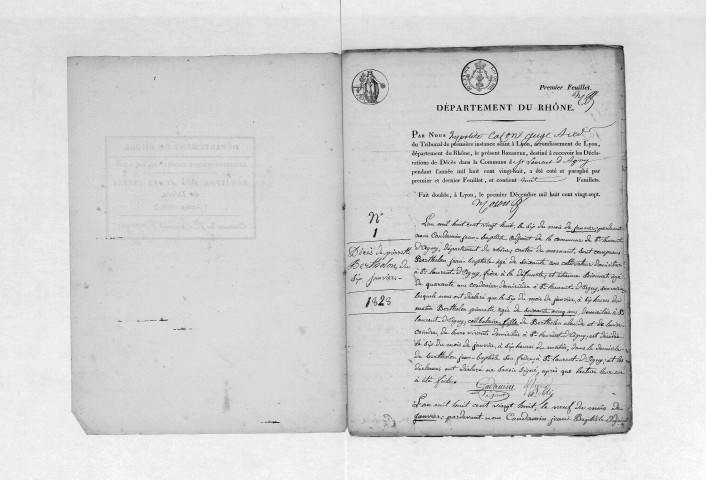 Premier Feuillet.
DÉPARTEMENT DU RHÔNE.
PAR NOUS hypolite
du Tribunal de première instance séant à Lyon, arrondissement de Lyon,
département du Rhône, le présent REGISTRE, destiné à recevoir les Décla-
rations de Décès dans la Commune de St Laurent d'Agny
pendant l'année mil huit cent vingt-huit, a été coté et paraphé par
premier et dernier Feuillet, et contient huit Feuillets.
Fait double, à Lyon, le premier Décembre mil huit cent vingt-sept.
N°
1
Décès de pierrette
Berthelon du
six janvier
1828
L'an mil huit cent vingt huit, le six du mois de janvier, pardevant
nous Condamin jean-baptiste adjoint de la commune de St laurent
d'Agny, département du rhône, canton de mornant, sont comparus
Berthelon jean-baptiste agé de soixante ans cultivateur domicilié
à St laurent-d'Agny, frère à la défunte, et étienne agé
de quarante ans domicilié à St laurent-d'Agny,
lesquels nous ont déclaré que le six du mois de janvier, à six heures du
matin Berthelon pierrette agée de soixante cinq ans, domiciliée à St
laurent-d'Agny, célibataire, fille de Berthelon claude et de
de leurs vivants domiciliés à St laurent-d'Agny, est décédée
le six du mois de janvier, à six heures du matin, dans le domicile
de berthelon jean-baptiste son frère à St laurent-d'Agny, et les
déclarants ont déclaré ne savoir signé, après que lecture leur en
a été faite.
Condamin
adjoint
L'an mil huit cent vingt huit, le neuf du mois de
janvier, pardevant nous Condamin jean Baptiste adjoint